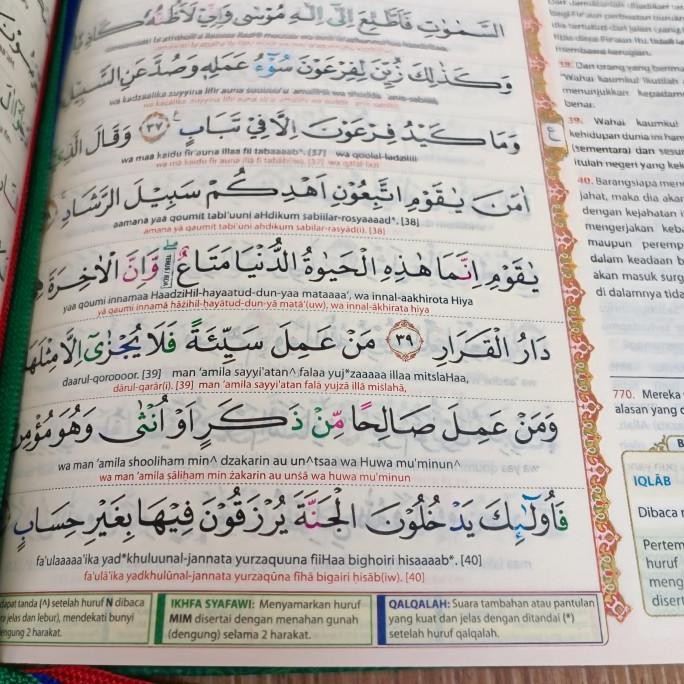 السَّمٰوٰتِ فَاَطَّلِعَ اِلٰٓى اِلٰهِ مُوْسٰى وَاِنِّيْ لَاَظُنُّهٗ كَاذِبًا
وَكَذٰلِكَ زُيِّنَ لِفِرْعَوْنَ سُوْۤءُ عَمَلِهٖ وَصُدَّ عَنِ السَّبِيْلِ
وَمَا كَيْدُ فِرْعَوْنَ اِلَّا فِيْ تَبَابٍ ٣٧ وَقَالَ الَّذِيْٓ
wa maa kaidu fir'auna illaa fii tabaaaab*. [37] wa qoolal-ladziiii
wa mā kaidu fir'auna illā fī tabāb(in). [37] wa qālal-lażī
اٰمَنَ يٰقَوْمِ اتَّبِعُوْنِ اَهْدِكُمْ سَبِيْلَ الرَّشَادِ
aamana yaa qoumit tabi'uuni aHdikum sabiilar-rosyaaaad*. [38]
āmana yā qaumit tabi'ūni ahdikum sabīlar-rasyād(i). [38]
يٰقَوْمِ اِنَّمَا هٰذِهِ الْحَيٰوةُ الدُّنْيَا مَتَاعٌ وَّاِنَّ الْاٰخِرَةَ
yaa qoumi innamaa HaadziHil-hayaatud-dun-yaa mataaaa', wa innal-aakhirota Hiya
yā qaumi innamā hāżihil-hayātud-dun-yā matā'(uw), wa innal-ākhirata hiya
دَارُ الْقَرَارِ ٣٩ مَنْ عَمِلَ سَيِّئَةً فَلَا يُجْزٰٓى اِلَّا مِثْلَهَا
daarul-qoroooor. [39] man 'amila sayyi'atan^ falaa yuj*zaaaaa illaa mitslaHaa,
dārul-qarār(i). [39] man 'amila sayyi'atan falā yujzā illā mislahā,
وَمَنْ عَمِلَ صَالِحًا مِّنْ ذَكَرٍ اَوْ اُنْثٰى وَهُوَ مُؤْمِنٌ
wa man 'amila shooliham min^ dzakarin au un^tsaa wa Huwa mu'minun^
wa man 'amila ṣāliham min żakarin au unṡā wa huwa mu'minun
فَاُولٰۤىِٕكَ يَدْخُلُوْنَ الْجَنَّةَ يُرْزَقُوْنَ فِيْهَا بِغَيْرِ حِسَابٍ
fa'ulaaaaa'ika yad*khuluunal-jannata yurzaquuna fiiHaa bighoiri hisaaaab*. [40]
fa'ulā'ika yadkhulūnal-jannata yurzaqūna fīhā bigairi ḥisāb(iw). [40]
dapat tanda (^) setelah huruf N dibaca
jelas dan lebur), mendekati bunyi
engung 2 harakat.
IKHFA SYAFAWI: Menyamarkan huruf
MIM disertai dengan menahan gunah
(dengung) selama 2 harakat.
QALQALAH: Suara tambahan atau pantulan
yang kuat dan jelas dengan ditandai (*)
setelah huruf qalqalah.
ع
membawa kerugian.
38. Dan orang yang berima
"Wahai kaumku! Ikutilah
menunjukkan kepadam
benar.
39. Wahai kaumku!
kehidupan dunia ini ham
(sementara) dan sesu
itulah negeri yang kek
40. Barangsiapa men
jahat, maka dia akar
dengan kejahatan i
mengerjakan keba
maupun peremp
dalam keadaan b
akan masuk surg
di dalamnya tida
770. Mereka
alasan yang c
B
IQLĀB
Dibaca r
Pertem
huruf
meng
disert